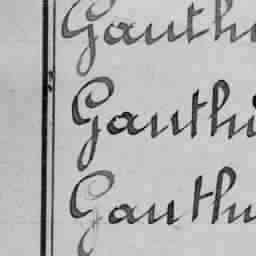 Gauthi
Gauthi
Gauthi